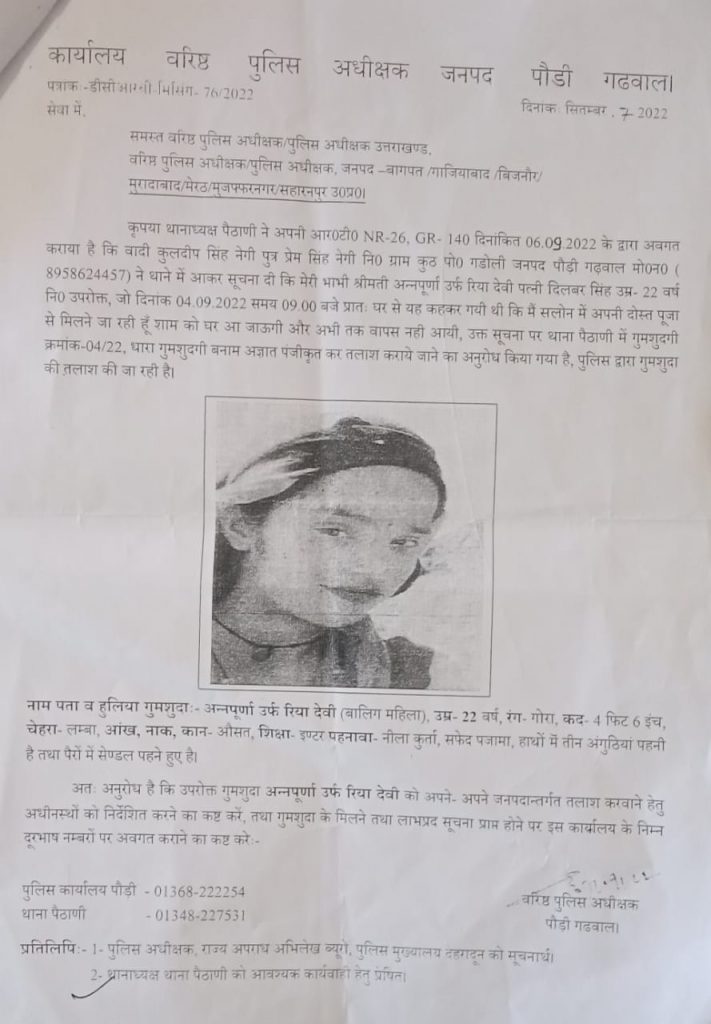 कार्यालय वरिष्ठ पुलिस अधीक्षक जनपद पौडी गढवाल।
पत्रांकः-डीसीआरबी-मिसिंग- 76/2022
दिनांकः सितम्बर . 7 2022
सेवा में,
समस्त वरिष्ठ पुलिस अधीक्षक/पुलिस अधीक्षक उत्तराखण्ड,
वरिष्ठ पुलिस अधीक्षक/पुलिस अधीक्षक, जनपद –बागपत /गाजियाबाद /बिजनौर/
मुरादाबाद/मेरठ/मुजफ्फरनगर/सहारनपुर उ0प्र0।
कृपया थानाध्यक्ष पैठाणी ने अपनी आर0टी0 NR-26, GR- 140 दिनांकित 06.09.2022 के द्वारा अवगत
कराया है कि वादी कुलदीप सिंह नेगी पुत्र प्रेम सिंह नेगी नि0 ग्राम कुठ पो0 गडोली जनपद पौड़ी गढ़वाल मो0न0 (
8958624457) ने थाने में आकर सूचना दी कि मेरी भाभी श्रीमती अन्नपूर्णा उर्फ रिया देवी पत्नी दिलबर सिंह उम्र- 22 वर्ष
नि0 उपरोक्त, जो दिनांक 04.09.2022 समय 09.00 बजे प्रातः घर से यह कहकर गयी थी कि मैं सलोन में अपनी दोस्त पूजा
से मिलने जा रही हूँ शाम को घर आ जाऊगी और अभी तक वापस नही आयी, उक्त सूचना पर थाना पैठाणी में गुमशुदगी
क्रमांक-04/22, धारा गुमशुदगी बनाम अज्ञात पंजीकृत कर तलाश कराये जाने का अनुरोध किया गया है, पुलिस द्वारा गुमशुदा
की तलाश की जा रही है।
नाम पता व हुलिया गुमशुदाः- अन्नपूर्णा उर्फ रिया देवी (बालिग महिला), उम्र- 22 वर्ष, रंग- गोरा, कद- 4 फिट 6 इंच,
चेहरा- लम्बा, आंख, नाक, कान- औसत, शिक्षा- इण्टर पहनावा- नीला कुर्ता, सफेद पजामा, हाथों में तीन अंगुठियां पहनी
है तथा पैरों में सेण्डल पहने हुए है।
अतः अनुरोध है कि उपरोक्त गुमशुदा अन्नपूर्णा उर्फ रिया देवी को अपने- अपने जनपदान्तर्गत तलाश करवाने हेतु
अधीनस्थों को निर्देशित करने का कष्ट करें, तथा गुमशुदा के मिलने तथा लाभप्रद सूचना प्राप्त होने पर इस कार्यालय के निम्न
दूरभाष नम्बरों पर अवगत कराने का कष्ट करेः-
पुलिस कार्यालय पौड़ी - 01368-222254
थाना पैठाणी - 01348-227531
वरिष्ठ पुलिस अधीक्षक
पौडी गढवाल।
प्रतिलिपिः- 1- पुलिस अधीक्षक, राज्य अपराध अभिलेख ब्यूरो, पुलिस मुख्यालय देहरादून को सूचनार्थ।
2- थानाध्यक्ष थाना पैठाणी को आवश्यक कार्यवाही हेतु प्रेषित।